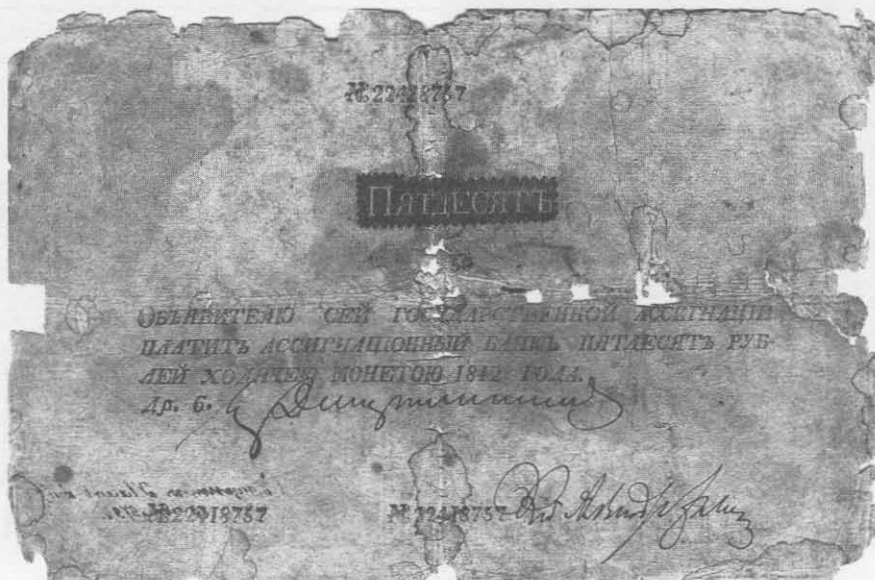 № 22418757
ПЯТДЕСЯТЪ
ОБЪЯВИТЕЛЮ СЕЙ ГОСУДАРСТВЕННОЙ АССИГНАЦІИ
ПЛАТИТЪ АССИГНАЦІОННЫЙ БАНКЪ ПЯТДЕСЯТЪ РУБ-
ЛЕЙ ХОДЯЧЕЮ МОНЕТОЮ 1812 ГОДА.
Др. 6.
№ 22418757 № 22418757